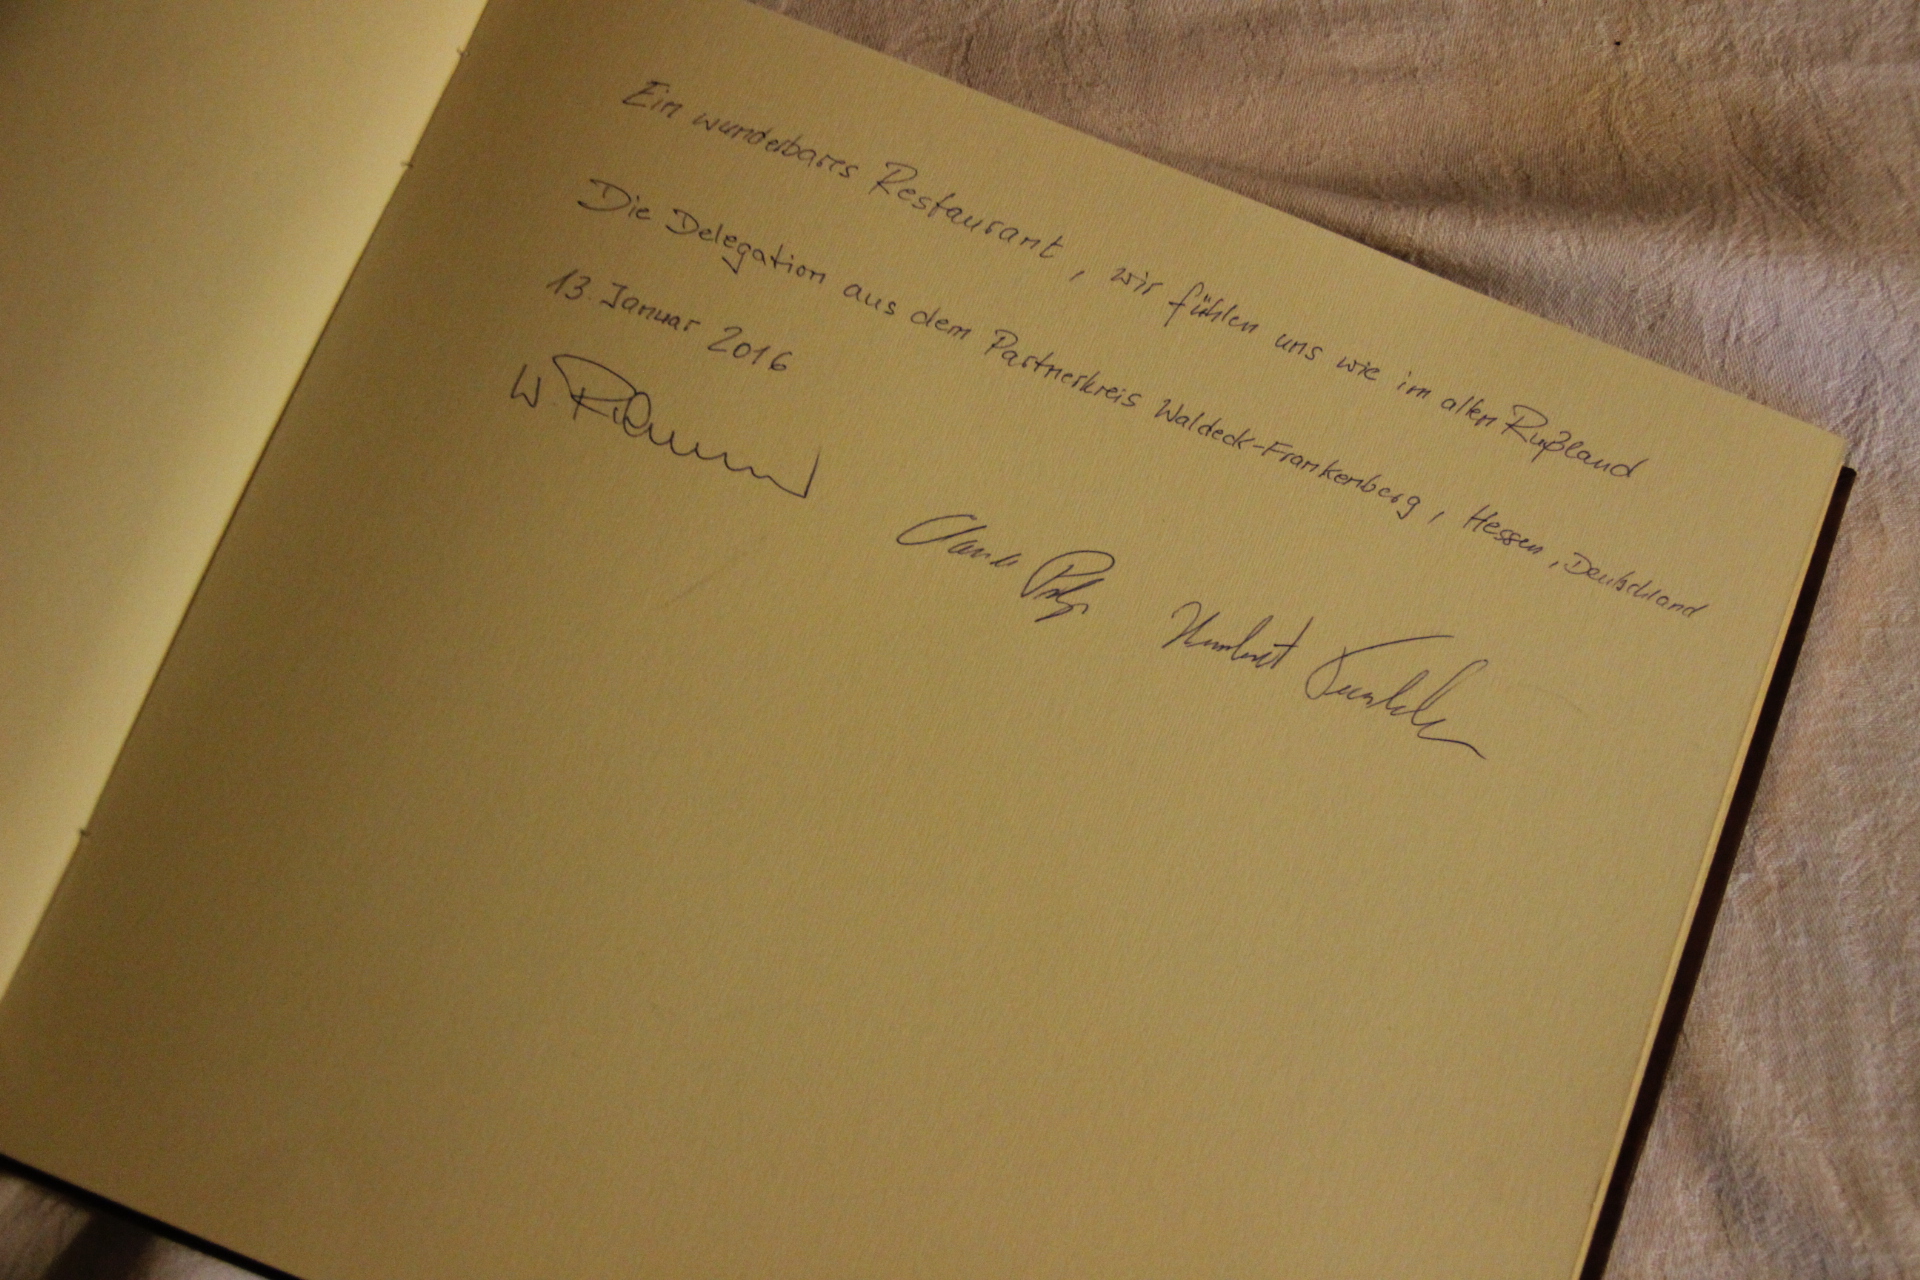 Ein wunderbares Restaurant, wir fühlen uns wie im alten Rußland
Die Delegation aus dem Partnerkreis Waldeck-Frankenberg, Hessen, Deutschland
13. Januar 2016
W.